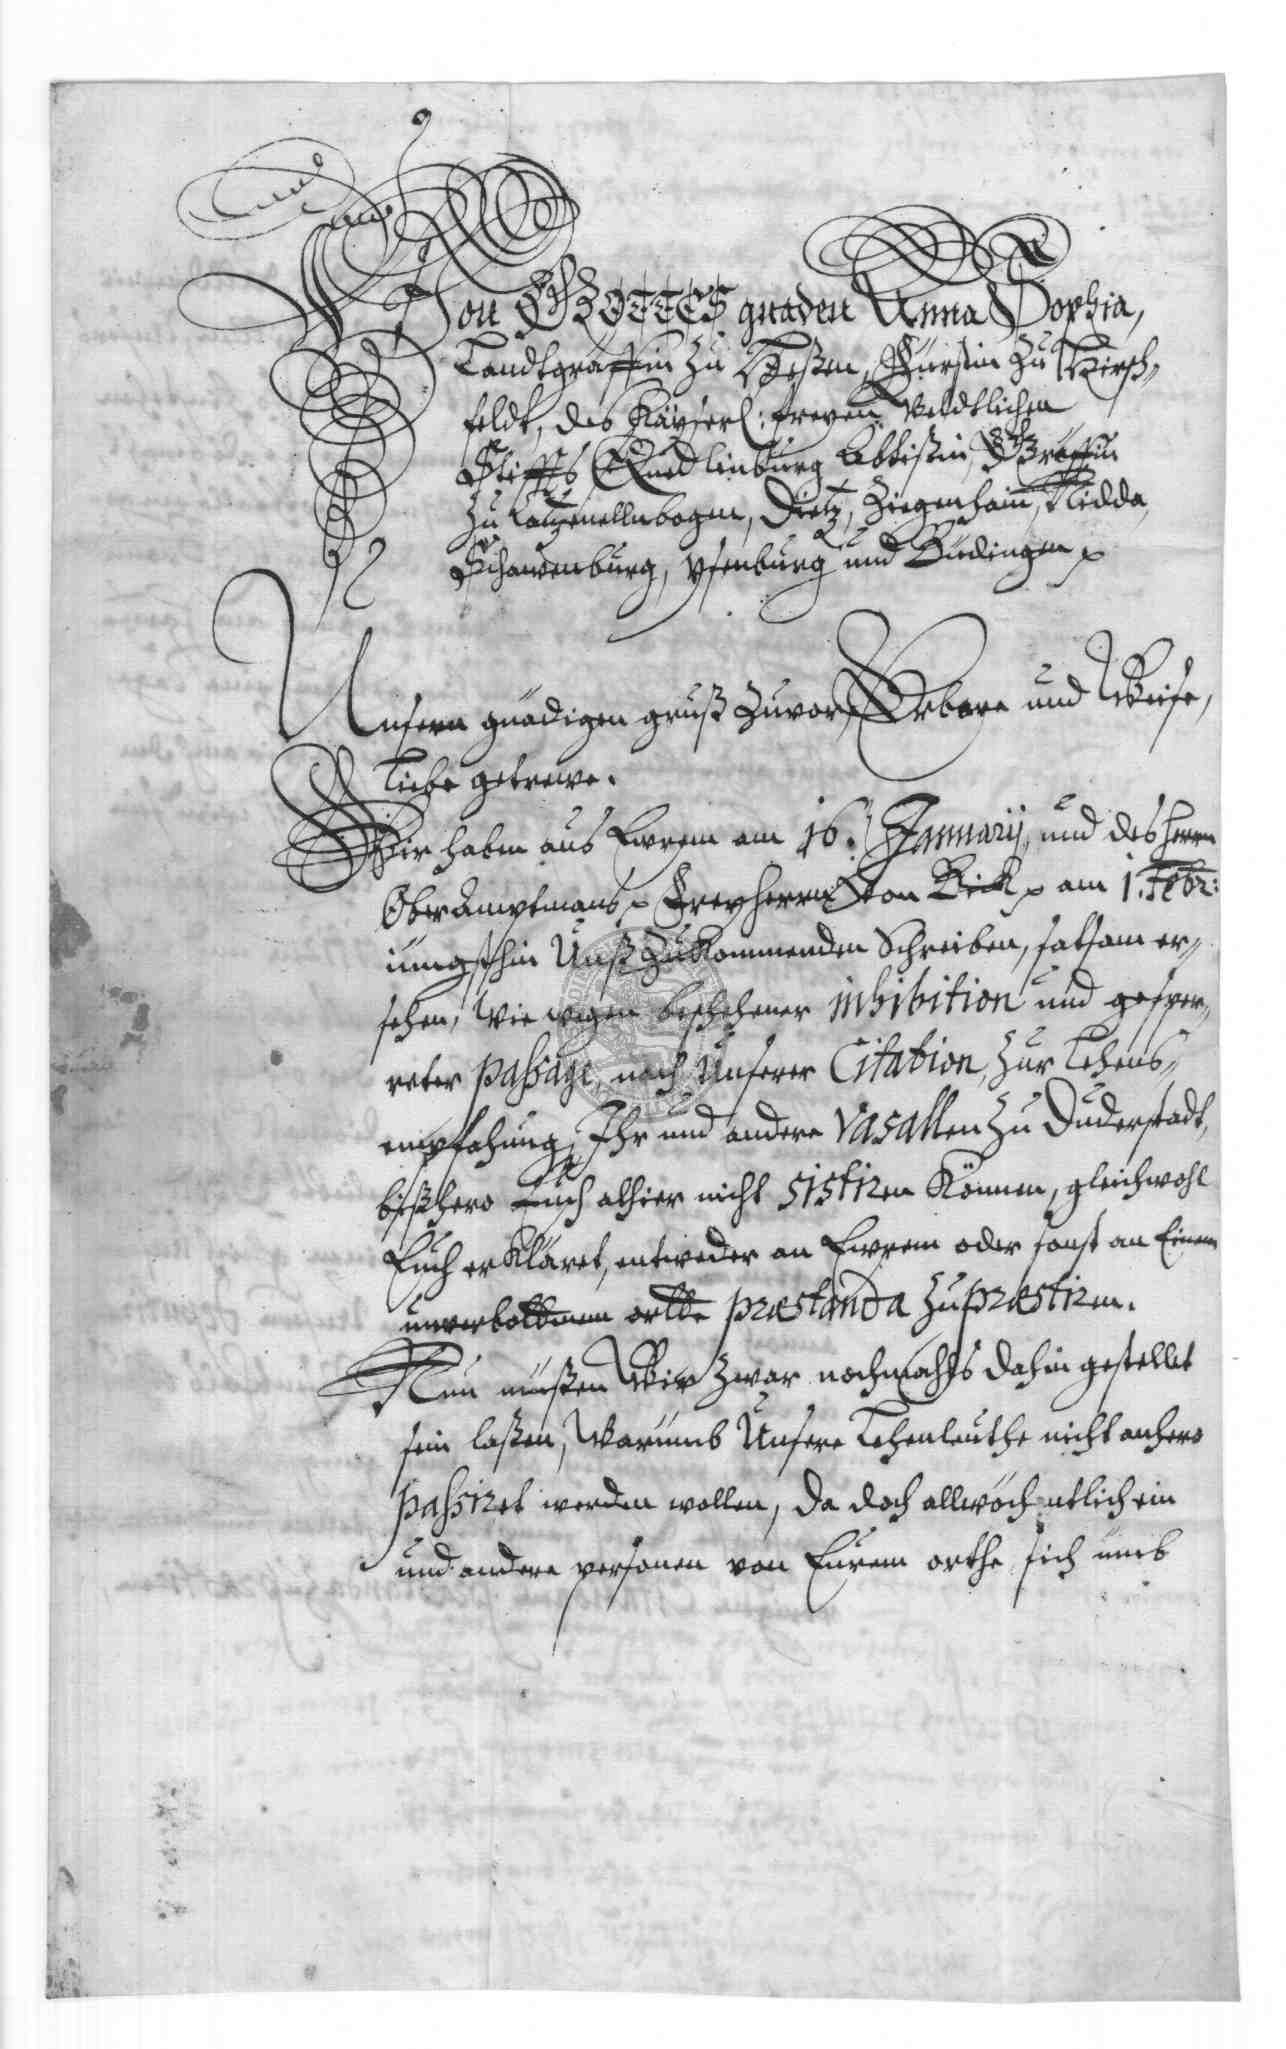 Von GOTTES gnaden Anna Sophia,
Landtgräffin zu Heßen, Fürstin zu Hirsch-
feldt, des Käyserl: freyen Weldtlichen
Stiffts Quedlinburg Abtißin, Gräffin
zu Catzenellnbogen, Dietz, Ziegenhain, Nidda,
Schauenburg, Ysenburg und Büdingen p
Unsern gnädigen gruß zuvor, Erbare und Weise,
Liebe getrewe.
Wir haben aus Ewrem am 16. Januarij, und des Herrn
Ober Amptmans p Freyherrn Von Bick p am 1. Febr:
iüngsthin Unß zukommenden Schreiben, satsam er-
sehen, wie wegen beschehener inhibition und gesper-
reter passage, nach Unserer Citation, zur Lehens-
empfahung, Ihr und andere Vasallen zu Duderstadt,
bißhero Euch alhier nicht sistiren Können, gleichwohl
Euch erkläret, entweder an Ewrem oder sonst an Einem
unverbottenen ortte præstanda zu præstiren.
Nun müßen Wir zwar nochmahls dahin gestellet
sein laßen, Warumb Unsere Lehenleuthe nicht anhero
passiret werden wollen, da doch allwöchentlich ein
und andere personen von Eurem orthe sich umb